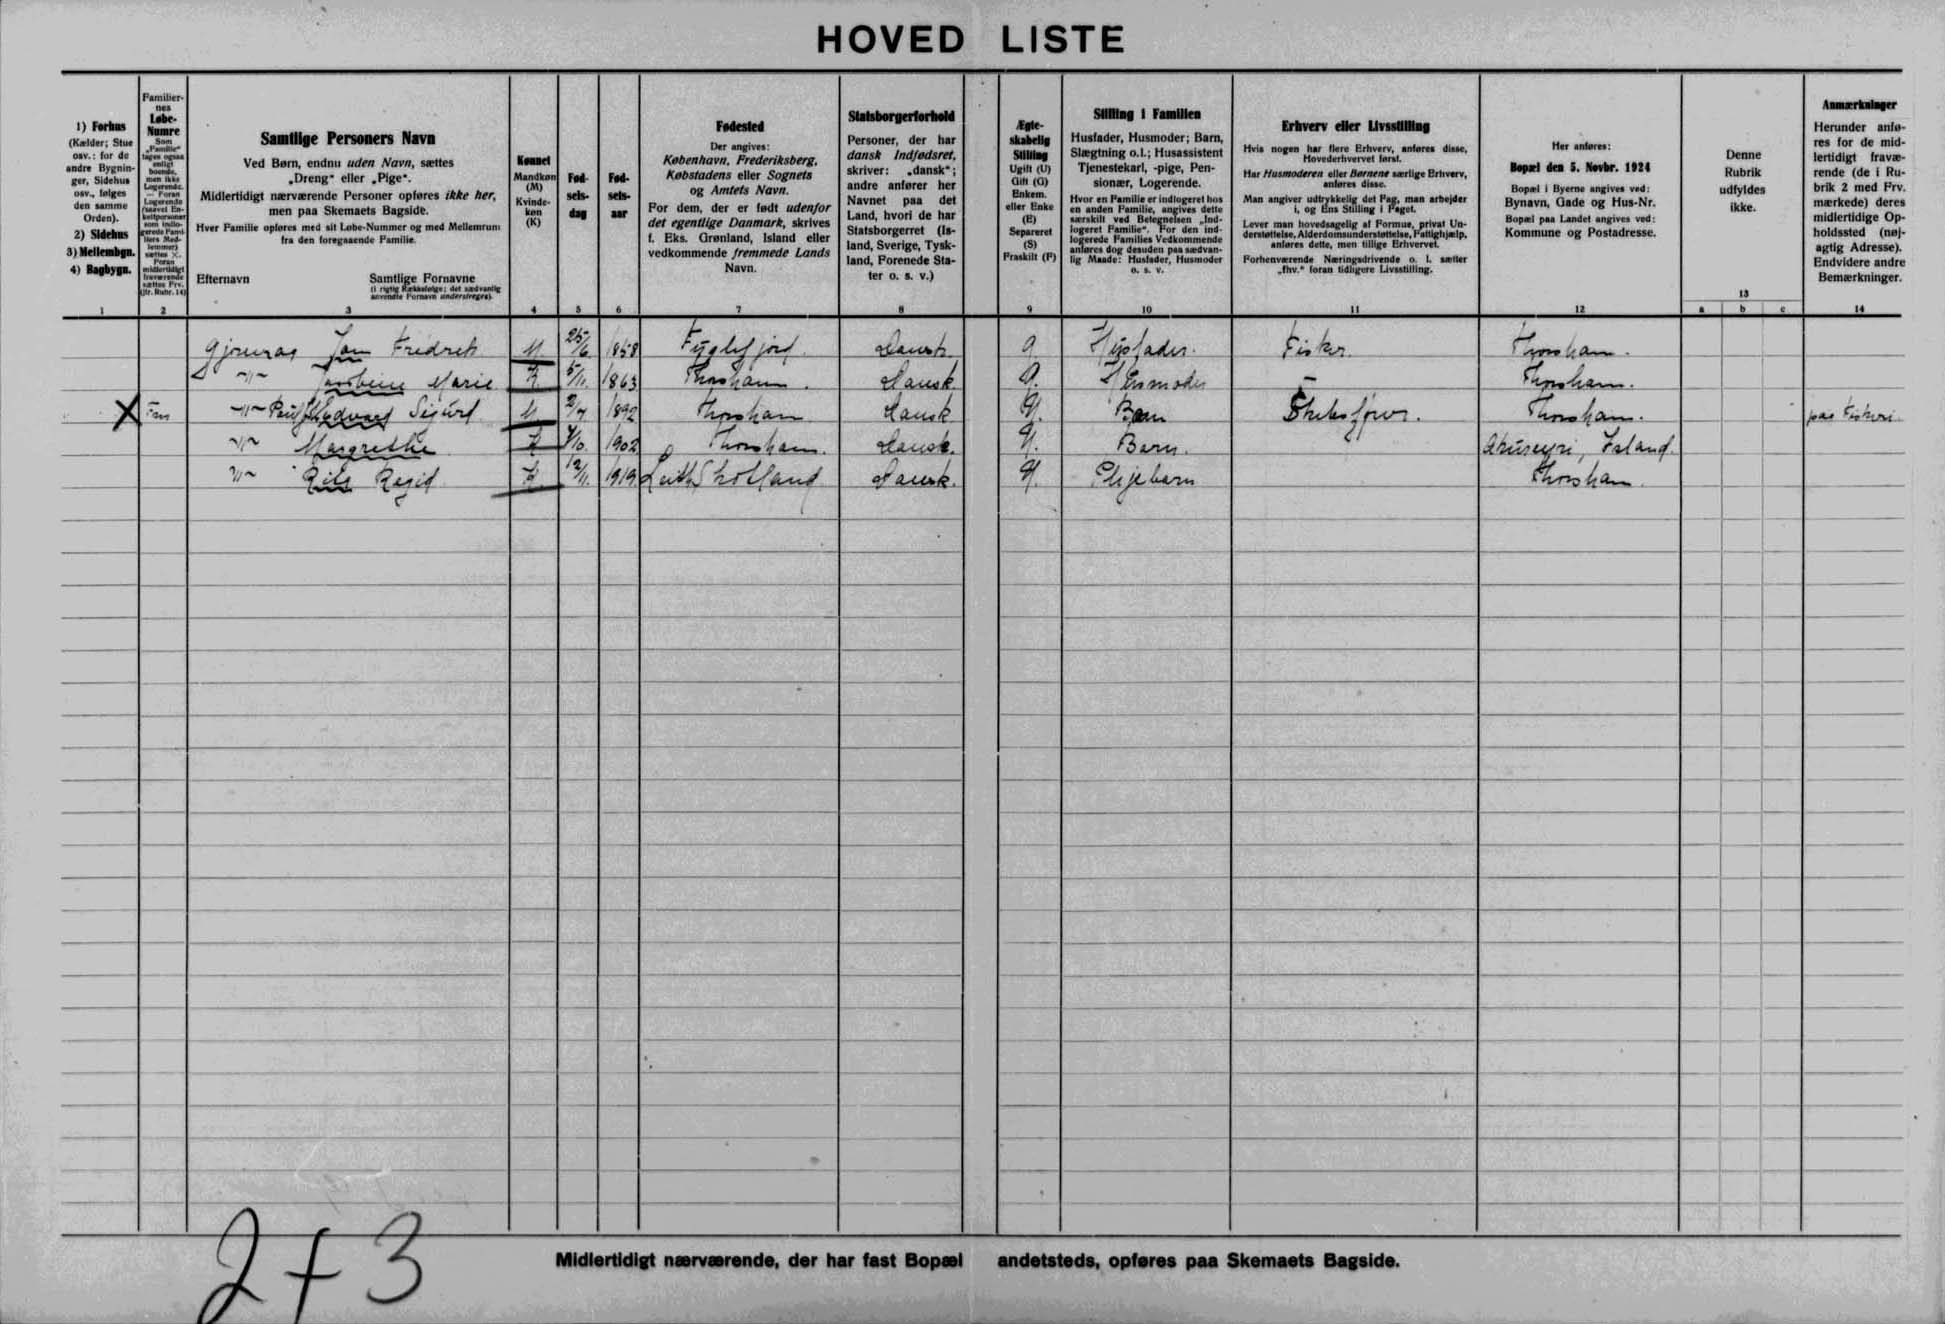 HOVED LISTE
1) Forhus
(Kælder; Stue
osv.: for de
andre Bygnin-
ger, Sidehus
osv., følges
den samme
Orden).
2) Sidehus
3) Mellembgn.
4) Bagbygn.
Familier-
nes
Løbe-
Numre
Som
„Familie“
tages ogsaa
enligt
boende,
men ikke
Logerende.
— Foran
Logerende
(saavel En-
keltpersoner
som indlo-
gerede Fami-
liers Med-
lemmer)
sættes ×.
Foran
midlertidigt
fraværende
sættes Frv.
(jfr. Rubr. 14)
Samtlige Personers Navn
Ved Børn, endnu uden Navn, sættes
„Dreng“ eller „Pige“.
Midlertidigt nærværende Personer opføres ikke her,
men paa Skemaets Bagside.
Hver Familie opføres med sit Løbe-Nummer og med Mellemrum
fra den foregaaende Familie.
Efternavn Samtlige Fornavne
(i rigtig Rækkefølge; det sædvanlig
anvendte Fornavn understreges).
Kønnet
Mandkøn
(M)
Kvinde-
køn
(K)
Fød-
sels-
dag
Fød-
sels-
aar
Fødested
Der angives:
København, Frederiksberg,
Købstadens eller Sognets
og Amtets Navn.
For dem, der er født udenfor
det egentlige Danmark, skrives
f. Eks. Grønland, Island eller
vedkommende fremmede Lands
Navn.
Statsborgerforhold
Personer, der har
dansk Indfødsret,
skriver: „dansk“;
andre anfører her
Navnet paa det
Land, hvori de har
Statsborgerret (Is-
land, Sverige, Tysk-
land, Forenede Sta-
ter o. s. v.)
Ægte-
skabelig
Stilling
Ugift (U)
Gift (G)
Enkem.
eller Enke
(E)
Separeret
(S)
Fraskilt (F)
Stilling i Familien
Husfader, Husmoder; Barn,
Slægtning o.l.; Husassistent
Tjenestekarl, -pige, Pen-
sionær, Logerende.
Hvor en Familie er indlogeret hos
en anden Familie, angives dette
særskilt ved Betegnelsen „Ind-
logeret Familie“. For den ind-
logerede Families Vedkommende
anføres dog desuden paa sædvan-
lig Maade: Husfader, Husmoder
o. s. v.
Erhverv eller Livsstilling
Hvis nogen har flere Erhverv, anføres disse,
Hovederhvervet først.
Har Husmoderen eller Børnene særlige Erhverv,
anføres disse.
Man angiver udtrykkelig det Fag, man arbejder
i, og Ens Stilling i Faget.
Lever man hovedsagelig af Formue, privat Un-
derstøttelse, Alderdomsunderstøttelse, Fattighjælp,
anføres dette, men tillige Erhvervet.
Forhenværende Næringsdrivende o. l. sætter
„fhv.“ foran tidligere Livsstilling.
Her anføres:
Bopæl den 5. Novbr. 1924
Bopæl i Byerne angives ved:
Bynavn, Gade og Hus-Nr.
Bopæl paa Landet angives ved:
Kommune og Postadresse.
Denne
Rubrik
udfyldes
ikke.
Anmærkninger
Herunder anfø-
res for de mid-
lertidigt fravæ-
rende (de i Ru-
brik 2 med Frv.
mærkede) deres
midlertidige Op-
holdssted (nøj-
agtig Adresse).
Endvidere andre
Bemærkninger.
1 2 3 4 5 6 7 8 9 10 11 12 13 a b c 14
Fredrek M 25/6 1858 Fuglefjord Dansk G Husfader. Fisker. Thorshavn.
-"- Marie K 5/11 1863 Thorshavn. Dansk G. Husmoder — Thorshavn.
X -"- Edvard Sigurd M 2/7 1892 Thorshavn Dansk U. Barn Thorshavn. paa Fiskeri
-"- Margrethe K 7/10 1902 Thorshavn. Dansk. U. Barn. Akureyri, Island.
-"- K 12/11 1919 Leith Skotland Dansk. U. Plejebarn Thorshavn
Midlertidigt nærværende, der har fast Bopæl andetsteds, opføres paa Skemaets Bagside.
2+3